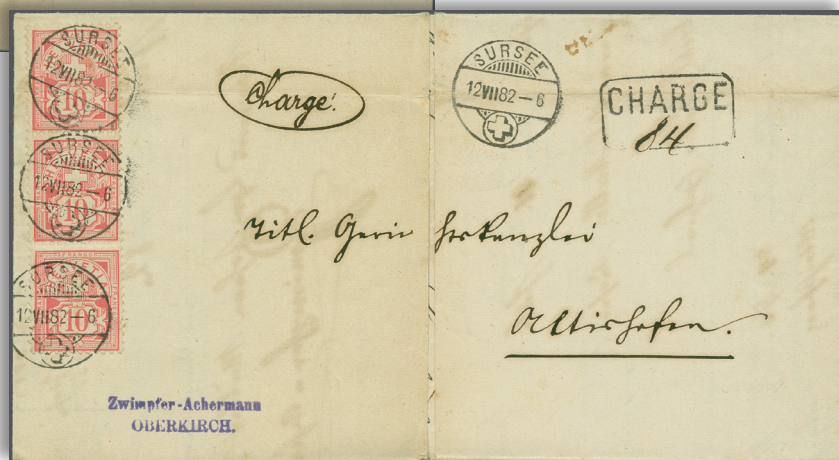 SURSEE
12VII82-6
10
SURSEE
12VII82-6
10
FRANCO
SURSEE
12VII82-6
10
Chargé.
SURSEE
12VII82-6
CHARGE
84
Titl. Gerichtskanzlei
Altishofen.
Zwimpfer-Achermann
OBERKIRCH.